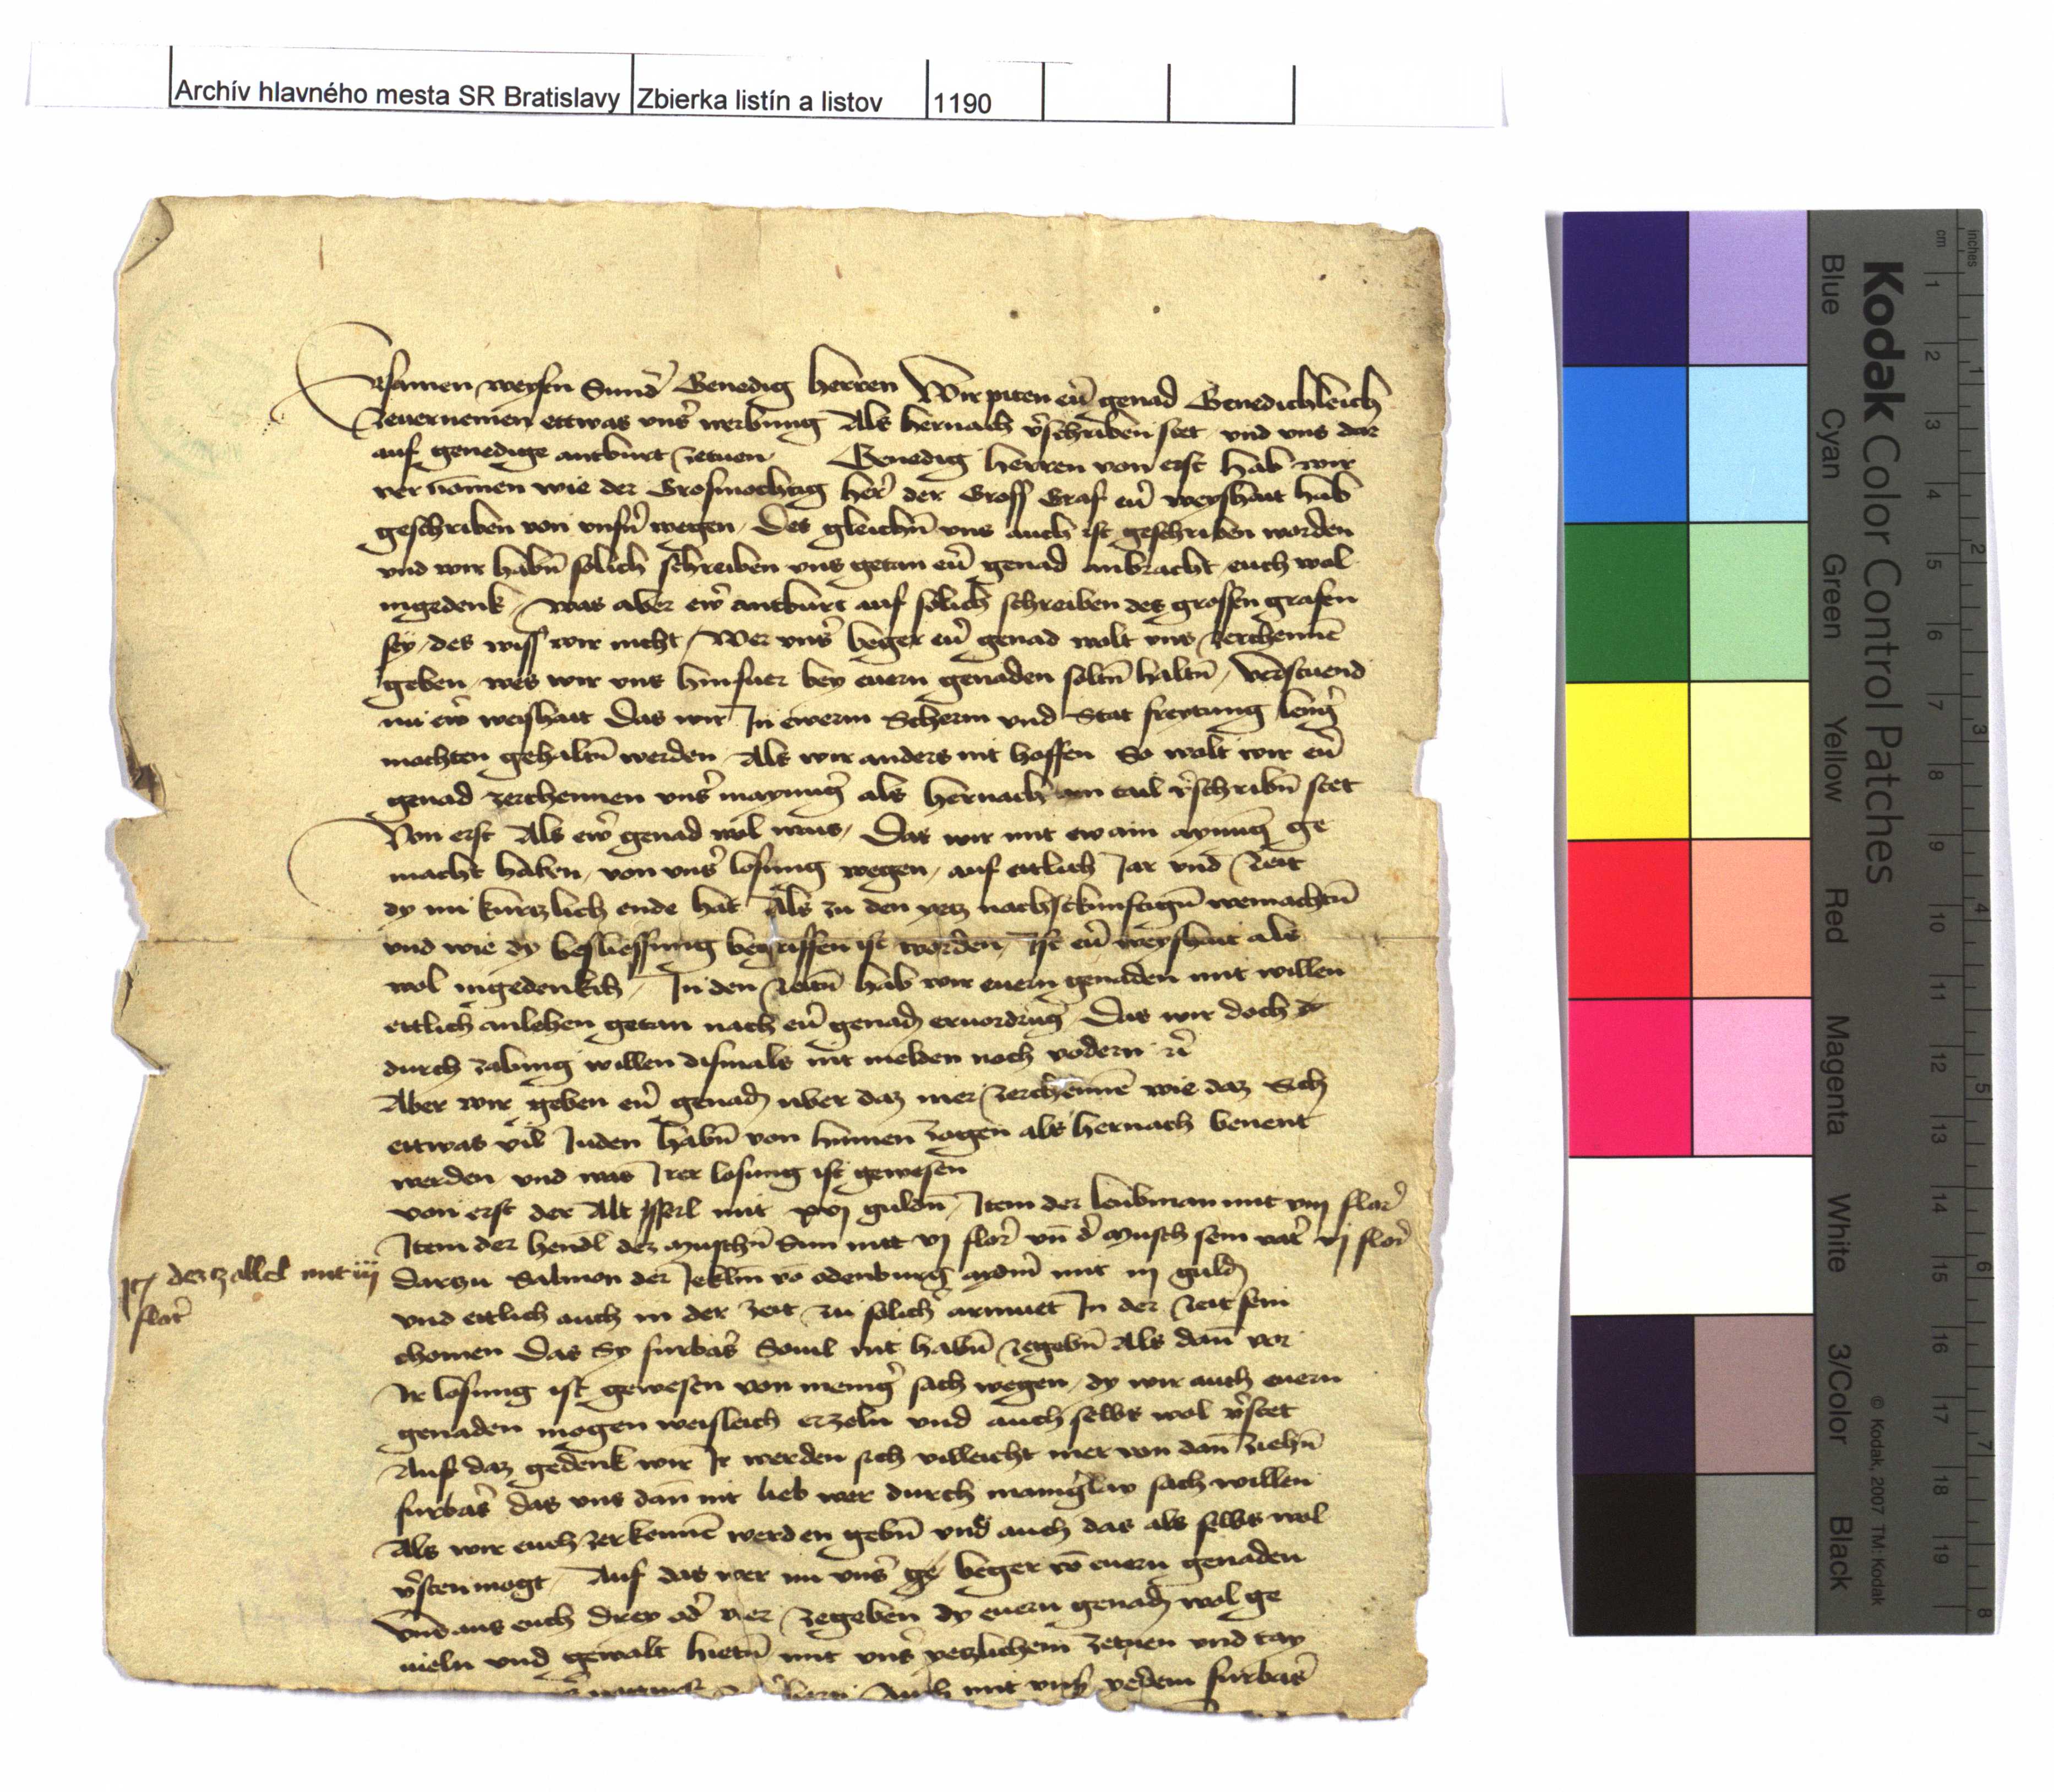 Archív hlavného mesta SR Bratislavy Zbierka listín a listov 1190
Ersamen weysen Sund' Genedig herren Wir piten eur genad Genedichleich
zeuernemen ettwas uns' werbung Als hernach v'schriben stet und uns dar
auf genedige antburt zetuen Genedig herren von erst hab wir
vernomen wie der Grosmechtig her' der Gross Graf eur weyshait hab
geschriben von unsern wegen Des gleichn uns auch ist geschriben worden
und wir habn solich schreiben uns getan eur genad anbracht euch wol
ingedenk was aber ewr antburt auf solich schreiben des grossen grafen
sey des wiss wir nicht Wer uns' beger eur genad wolt uns zerchenne
geben wes wir uns hinfuer bey euern genaden soltn haltn Verstuend
nu ewr weishait Das wir In ewerm Scherm und Stat freyung leng'
mochten gehaltn werden Als wir anders nit hoffen So wolt wir eur
genad zerchennen uns' maynung als hernach ain tail v'schribn stet
Von erst Als ewr genad wol wais Das wir mit ew ain aynung ge
macht haben von uns' losung wegen auf ettlich Jar und Zeit
dy nu kurtzlich ende hat Als zu den yetz nachstkunftign weinachtn
und wie dy besliessung begriffen ist worden Ist eur weyshait als
wol ingedenkch In den Zeitn hab wir euern genaden mit willen
ettlich anlehen getan nach eur genad eruordrung Das wir doch
durch willen dismals nit melden noch vodern
Aber wir geben eur genad uber daz mer zerchenne wie daz Sich
ettwas vil Juden habn von hinnen zogen als hernach benent
werden und was Irer losung ist gewesen
von erst der Alt Isserl mit xvj guldn Item der leubman mit viij flor'
Item der hendl des muschn Sun mit vj flor' un d' Musch sein vat' vj flor'
It der zallel mit iij
flor'
Dartzu Salmon der Jeklin vo odenburg aydm mit iij guld
und ettlich auch in der zeit zu solich armuet In der Zeit sein
chomen Das Sy furbas' Souil nit habn zegebn Als dan vor
Ir losung ist gewesen von menig' sach wegen dy wir auch euern
genaden mogen weisleich erzeln und auch selbs wol v'stet
Auf daz gedenk wir Ir werden sich villeicht mer von dan ziehn
furbas' das uns dan nit lieb wer durch sach willen
Als wir euch zerkenne werden gebn und auch das als selbs wol
v'sten mogt Auf das wer nu uns' beger vo euern genaden
Und aus euch drey od' vier zegeben dy euern genad wol ge
uieln und gewalt hietn mit uns yetzlichem zetuen und tay
Auch mit uns' yedem furbas'
Kodak Color Control Patches
Blue Cyan Green Yellow Red Magenta White 3/Color Black
© Kodak, 2007 TM: Kodak
inches 1 2 3 4 5 6 7 8
cm 1 2 3 4 5 6 7 8 9 10 11 12 13 14 15 16 17 18 19